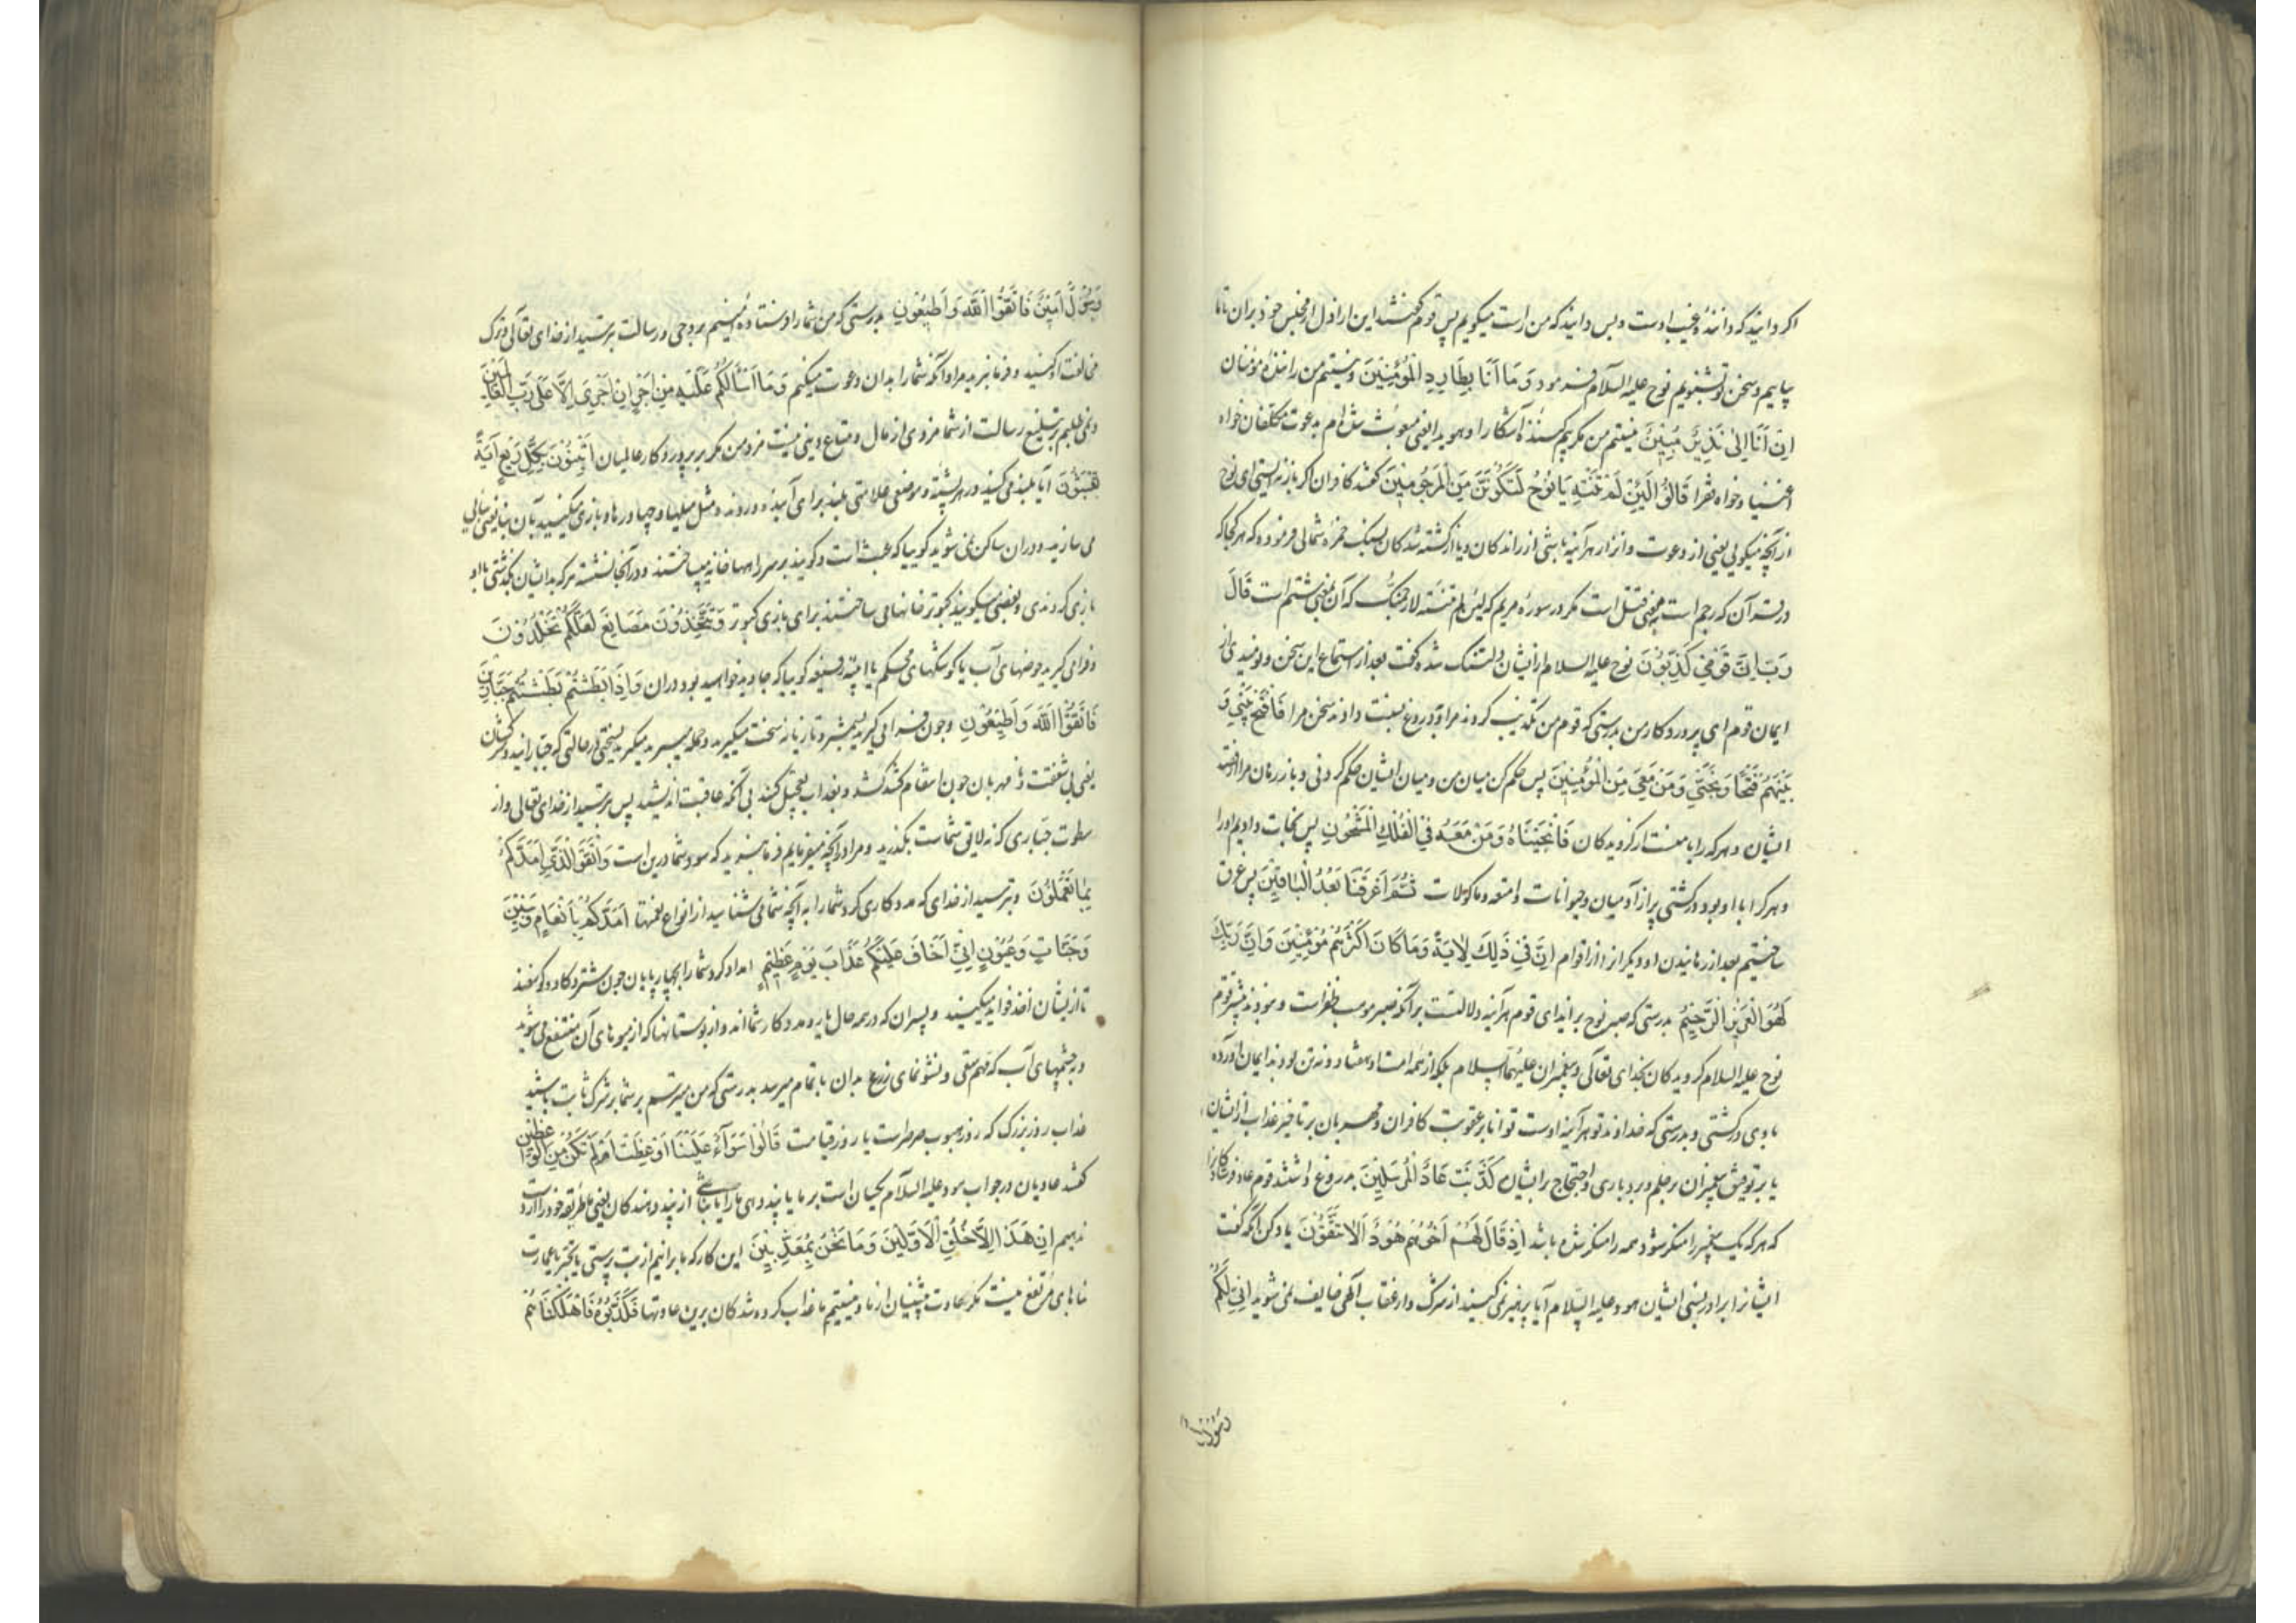 اکر دانید که دانندهٔ غیب اوست و بس دانید که من راست میکویم پس قوم کفتند این اراذل از مجلس خود بران تا ما
بیاییم و سخن تو بشنویم نوح علیه السلام فرمود وَمَا اَنَا بِطَارِدِ الْمُؤْمِنِینَ و نیستم من رانندهٔ مؤمنان
اِنْ اَنَا اِلَّا نَذِیرٌ مُبِینٌ نیستم من مکر بیم کننده آشکارا و هویدا یعنی مبعوث شده ام بدعوت مکلفان خواه
اغنیا و خواه فقرا قَالُوا لَئِنْ لَمْ تَنْتَهِ یَا نُوحُ لَتَکُونَنَّ مِنَ الْمَرْجُومِینَ کفتند کافران اکر بازنه ایستی ای نوح
از آنچه میکویی یعنی از دعوت و انذار هرآینه باشی از راندکان و یا از کشته شدکان بسنک حمزه شمالی فرموده که هر کجا که
در قرآن که رجم است بمعنی قتل است مکر در سوره مریم که لئن لم تنته لارجمنک که آن بمعنی شتم است قَالَ
رَبِّ اِنَّ قَوْمِی کَذَّبُونِ نوح علیه السلام از ایشان دلتنک شده کفت بعد از استماع این سخن و نومیدی از
ایمان قوم ای پروردکار من بدرستی که قوم من تکذیب کردند مرا و بدروغ نسبت دادند سخن مرا فَافْتَحْ بَیْنِی وَ
بَیْنَهُمْ فَتْحًا وَنَجِّنِی وَمَنْ مَعِیَ مِنَ الْمُؤْمِنِینَ پس حکم کن میان من و میان ایشان حکم کردنی و باز رهان مرا از قصد
ایشان و هر که را با منست از کرویدکان فَاَنْجَیْنَاهُ وَمَنْ مَعَهُ فِی الْفُلْکِ الْمَشْحُونِ پس نجات دادیم او را
و هر کرا با او بود در کشتی پر از آدمیان و حیوانات و امتعه و ماکولات ثُمَّ اَغْرَقْنَا بَعْدُ الْبَاقِینَ پس غرق
ساختیم بعد از رهانیدن او دیکرانرا از اقوام اِنَّ فِی ذٰلِکَ لَاٰیَةً وَمَا کَانَ اَکْثَرُهُمْ مُؤْمِنِینَ وَاِنَّ رَبَّکَ
لَهُوَ الْعَزِیزُ الرَّحِیمُ بدرستی که صبر نوح بر ایذای قوم هرآینه دلالتست برآنکه صبر موجب ظفر است و نبودند بیشتر قوم
نوح علیه السلام کرویدکان بخدای تعالی و پیغمبران علیهم السلام بلکه از همه امت او هفتاد و نه تن بودند ایمان آورده
با وی در کشتی و بدرستی که خداوند تو هرآینه اوست توانا بر عقوبت کافران و مهربان بر تاخیر عذاب از ایشان
یا بر توفیق پیغمبران بر حلم و بردباری و احتجاج بر ایشان کَذَّبَتْ عَادٌ الْمُرْسَلِینَ بدروغ داشتند قوم عاد فرستادکانرا
که هر که یک پیغمبر را منکر شود همه را منکر شده باشد اِذْ قَالَ لَهُمْ اَخُوهُمْ هُودٌ اَلَا تَتَّقُونَ یاد کن آنکه کفت
ایشانرا برادر نسبی ایشان هود علیه السلام آیا پرهیز نمی کنید از شرک و از عقاب الهی خایف نمی شوید اِنِّی لَکُمْ
رَسُولٌ
رَسُولٌ اَمِینٌ فَاتَّقُوا اللّٰهَ وَاَطِیعُونِ بدرستی که من شما را فرستاده امینم بر وحی و رسالت بترسید از خدای تعالی و ترک
مخالفت او کنید و فرمانبرید مرا در آنکه شما را بدان دعوت میکنم وَمَا اَسْأَلُکُمْ عَلَیْهِ مِنْ اَجْرٍ اِنْ اَجْرِیَ اِلَّا عَلَی رَبِّ الْعَالَمِینَ
و نمی طلبم بر تبلیغ رسالت از شما مزدی از مال و متاع دینی نیست مزد من مکر بر پروردکار عالمیان اَتَبْنُونَ بِکُلِّ رِیعٍ اٰیَةً
تَعْبَثُونَ آیا بلند می کنید در هر پشته و موضعی علامتی بلند برای آینده و رونده مثل میلها و چهاردرها و بازی میکنید بآن بنا یعنی بنایی
می سازید و دران ساکن نمی شوید کوییا که عبث است و کویند بر سر راهها خانه میساختند و در آنجا نشسته هر که بدیشان بکذشتی با او
بازی کردندی و بعضی میکویند کبوتر خانها می ساختند برای بازی کبوتر وَتَتَّخِذُونَ مَصَانِعَ لَعَلَّکُمْ تَخْلُدُونَ
و فرا می کیرید حوضهای آب یا کوشکهای محکم یا ابنیه رفیعه کوییا که جاوید خواهید بود دران وَاِذَا بَطَشْتُمْ بَطَشْتُمْ جَبَّارِینَ
فَاتَّقُوا اللّٰهَ وَاَطِیعُونِ و چون فرا می کیرید بشمشیر و تازیانه سخت میکیرید و حمله میبرید میکیرید بسختی در حالتی که جبارانید و سرکشان
یعنی بی شفقت و نا مهربان چون انتقام کشندکشند و بعذاب تعجیل کنند بی آنکه عاقبت اندیشید پس بترسید از خدای تعالی و از
سطوت جباری که نه لایق شماست بکذرید و مرا در آنچه میفرمایم فرمانبرید که سود شما درین است وَاتَّقُوا الَّذِی اَمَدَّکُمْ
بِمَا تَعْلَمُونَ و بترسید از خدای که مددکاری کرد شما را به آنچه شما می شناسید از انواع نعمتها اَمَدَّکُمْ بِاَنْعَامٍ وَبَنِینَ
وَجَنَّاتٍ وَعُیُونٍ اِنِّی اَخَافُ عَلَیْکُمْ عَذَابَ یَوْمٍ عَظِیمٍ امداد کرد شما را بچهارپایان چون شتر و کاو و کوسفند
تا از ایشان اخذ فواید میکنید و پسران که در همه حال یار و مددکار شما اند و از بوستانها که از میوهای آن منتفع می شوید
و بچشمهای آب که مهم سقی و نشو نمای زرع بدان باتمام میرسد بدرستی که من میترسم بر شما بر شرک ثابت باشید
عذاب روز بزرک که روز هبوب صرصر است یا روز قیامت قَالُوا سَوَآءٌ عَلَیْنَا اَوَعَظْتَ اَمْ لَمْ تَکُنْ مِنَ الْوَاعِظِینَ
کفتند عادیان در جواب هود علیه السلام یکسان است بر ما یا پند دهی ما را یا نباشی از پند دهندکان یعنی ما طریقه خود را از دست
ندهیم اِنْ هٰذَا اِلَّا خُلُقُ الْاَوَّلِینَ وَمَا نَحْنُ بِمُعَذَّبِینَ این کار که ما برانیم از بت پرستی یا تجبر یا عمارت
بناهای مرتفع نیست مکر عادت پیشینیان از ما و نیستیم ما عذاب کرده شدکان برین عادتها فَکَذَّبُوهُ فَاَهْلَکْنَاهُمْ